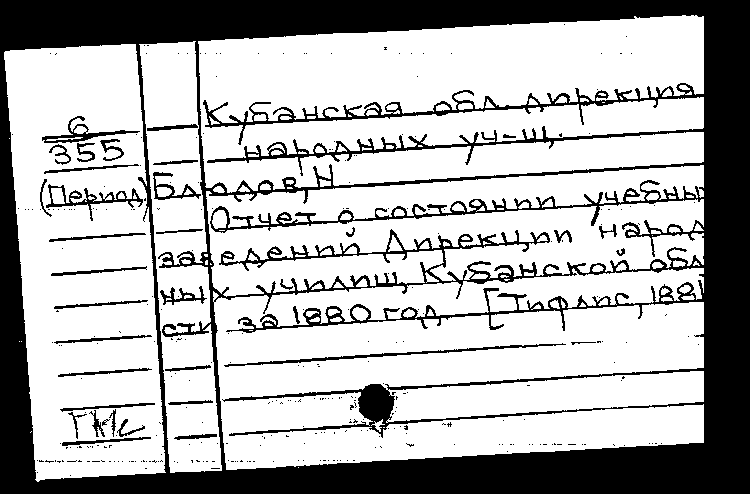 Кубанская обл. дирекция
6
355
народных уч-щ.
(Период) Блюдов, Н
Отчет о состоянии учебны
заведений Дирекции народ
ных училищ, Кубанской обл
сти за 1880 год. [Тифлис, 1881